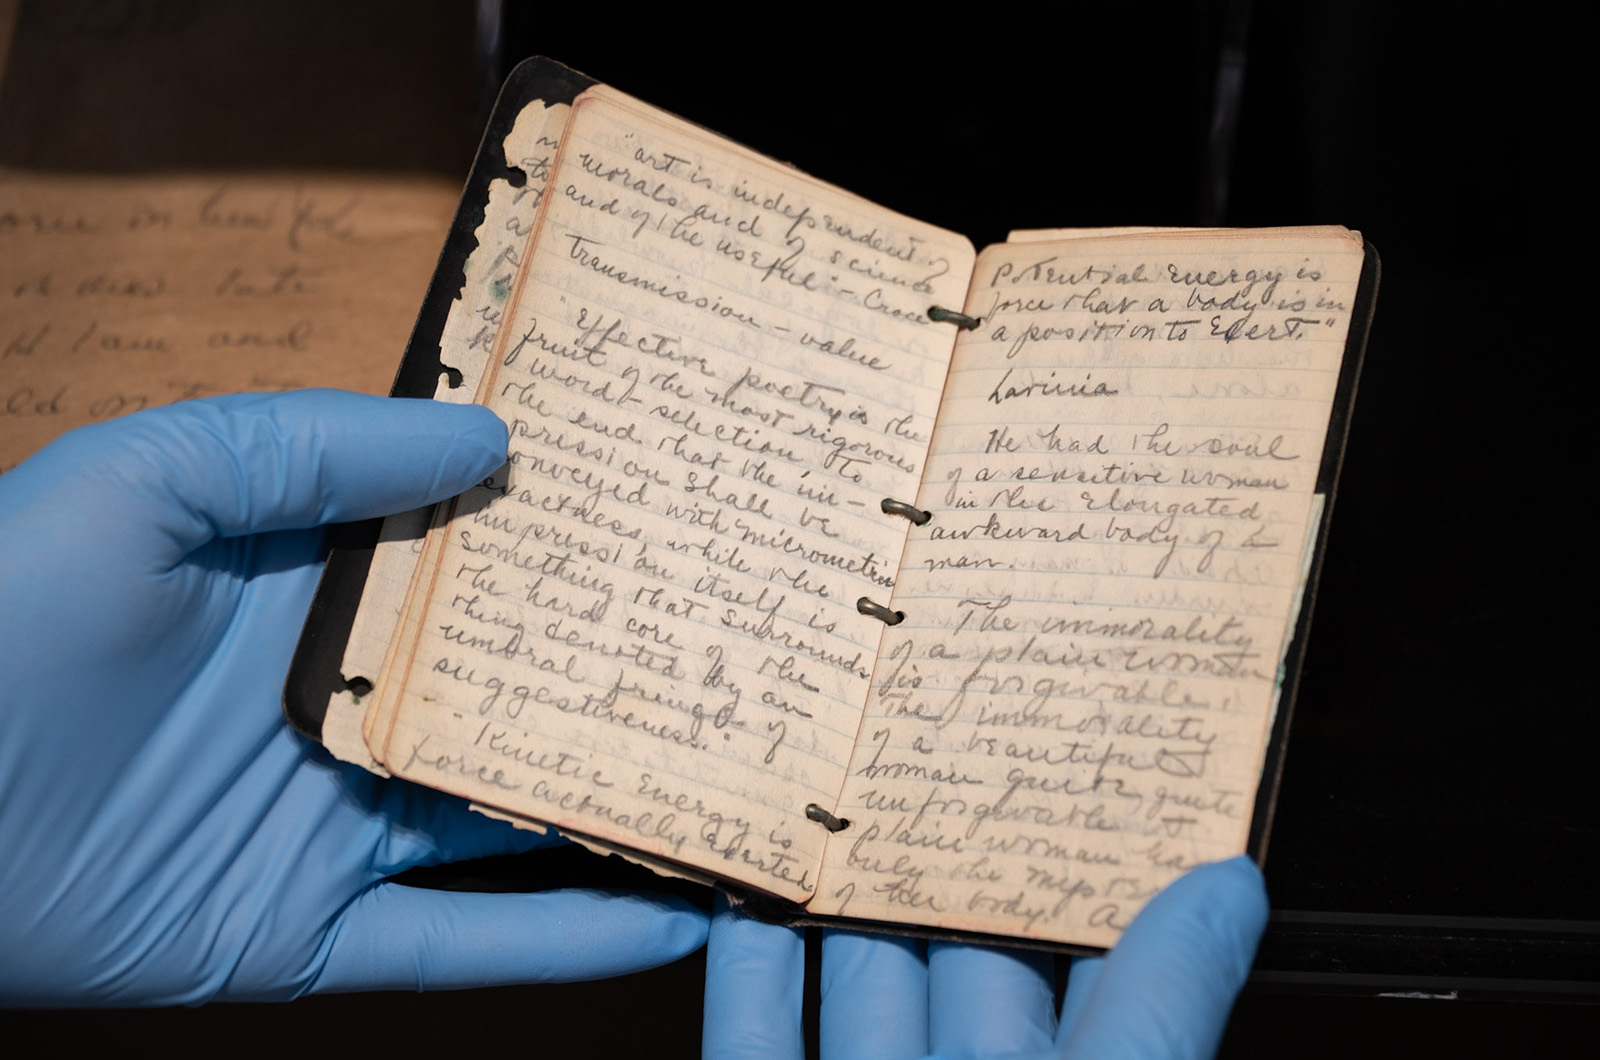 "art is independent of
morals and of science
and of the useful" – Croce
Transmission – value
"Effective poetry is the
fruit of the most rigorous
word-selection, to
the end that the im-
pression shall be
conveyed with micrometric
exactness, while the
impression itself is
something that surrounds
the hard core of the
thing denoted by an
umbral fringe of
suggestiveness."
"Kinetic Energy is
force actually exerted.
Potential Energy is
force that a body is in
a position to Exert."
Lavinia
He had the soul
of a sensitive woman
in the Elongated
awkward body of a
man.
The immorality
of a plain woman
is forgivable.
The immorality
of a beautiful
woman quite, quite
unforgivable. A
plain woman has
only the mystery
of her body. A
am and